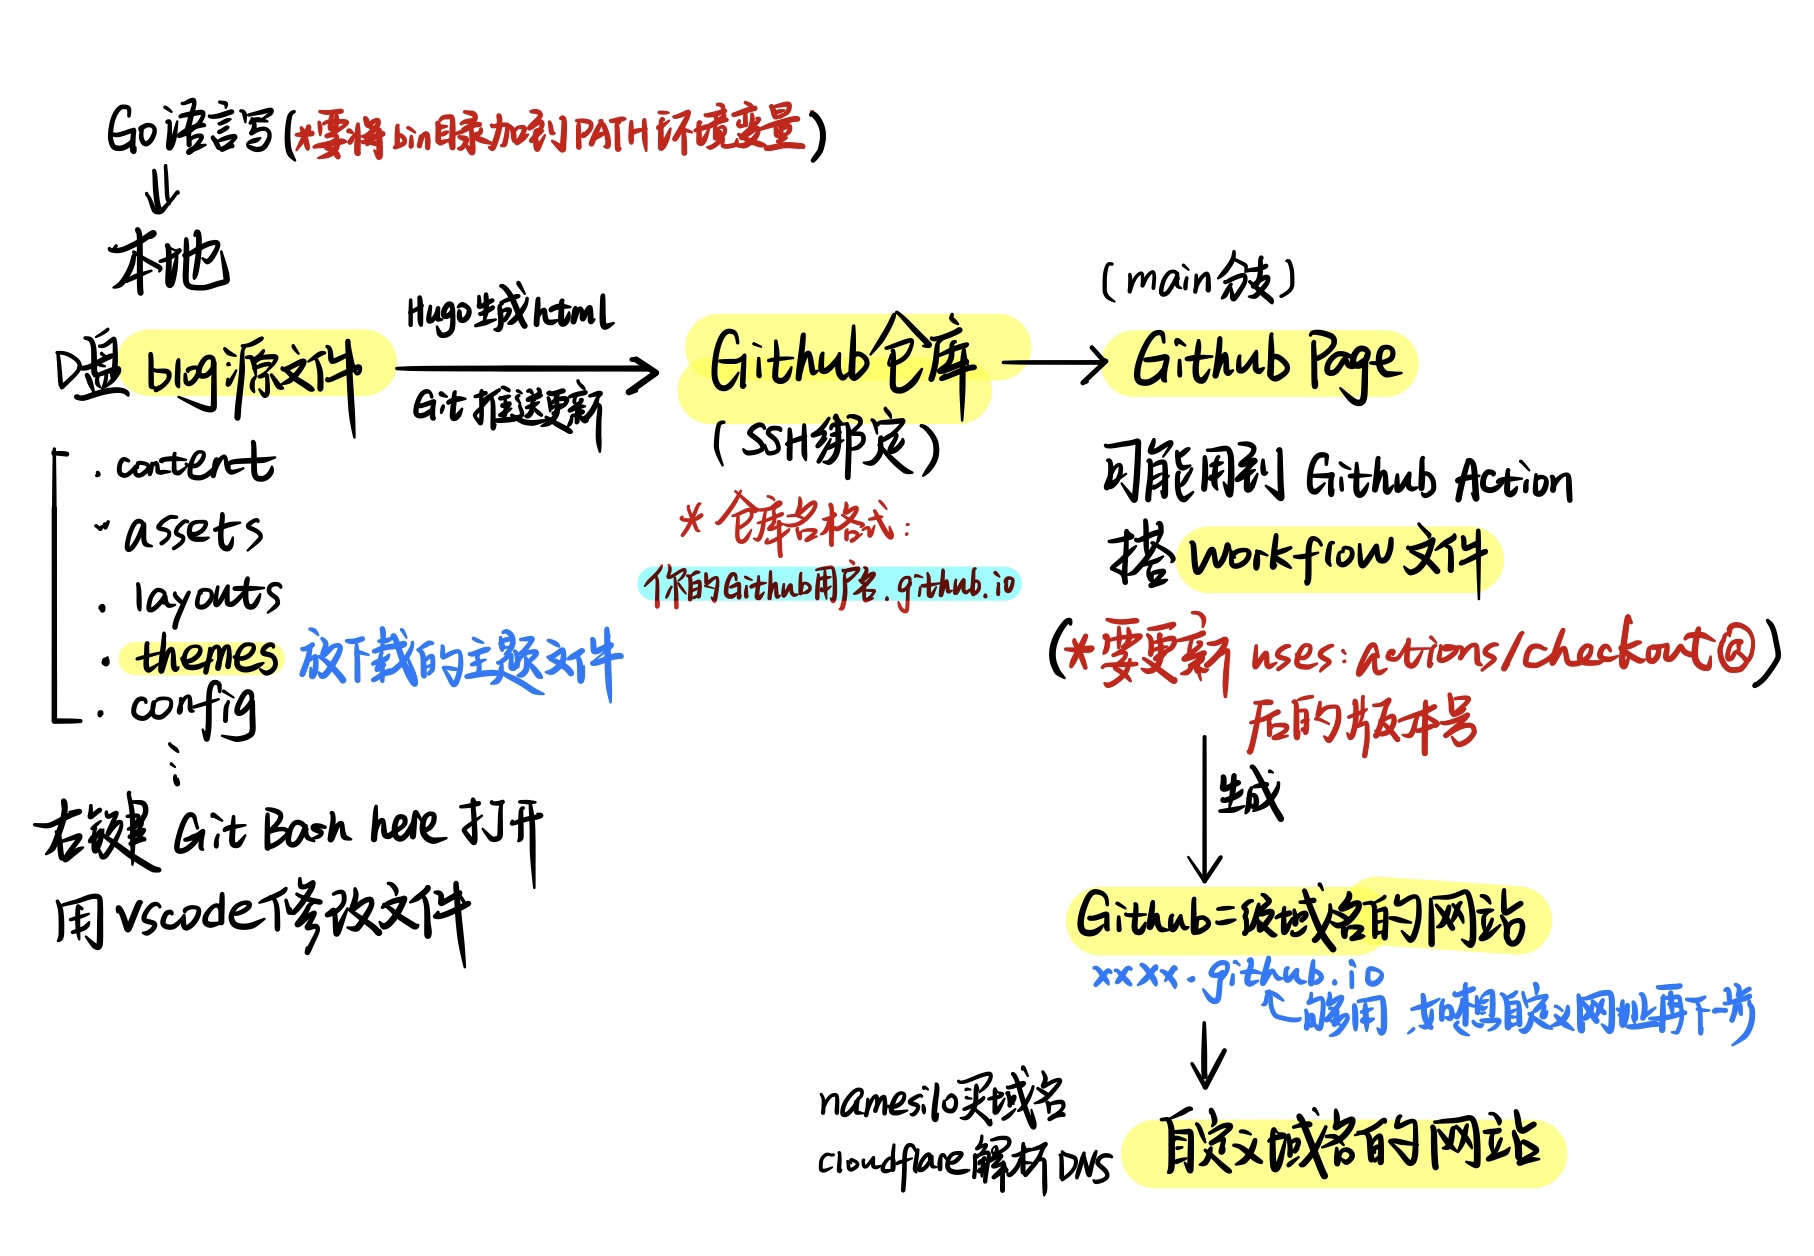 Go语言写(*要将bin目录加到PATH环境变量)
本地
D盘 blog源文件
Hugo生成html
Git推送更新
. content
. assets
. layouts
. themes 放下载的主题文件
. config
右键 Git Bash here 打开
用vscode修改文件
Github仓库
(SSH绑定)
* 仓库名格式:
你的Github用户名.github.io
(main分支)
Github Page
可能用到 Github Action
搭 workflow 文件
(*要更新 uses: actions/checkout@)
后的版本号
生成
Github二级域名的网站
xxxx.github.io
够用,如想自定义网址再下一步
namesilo买域名
cloudflare解析DNS
自定义域名的网站